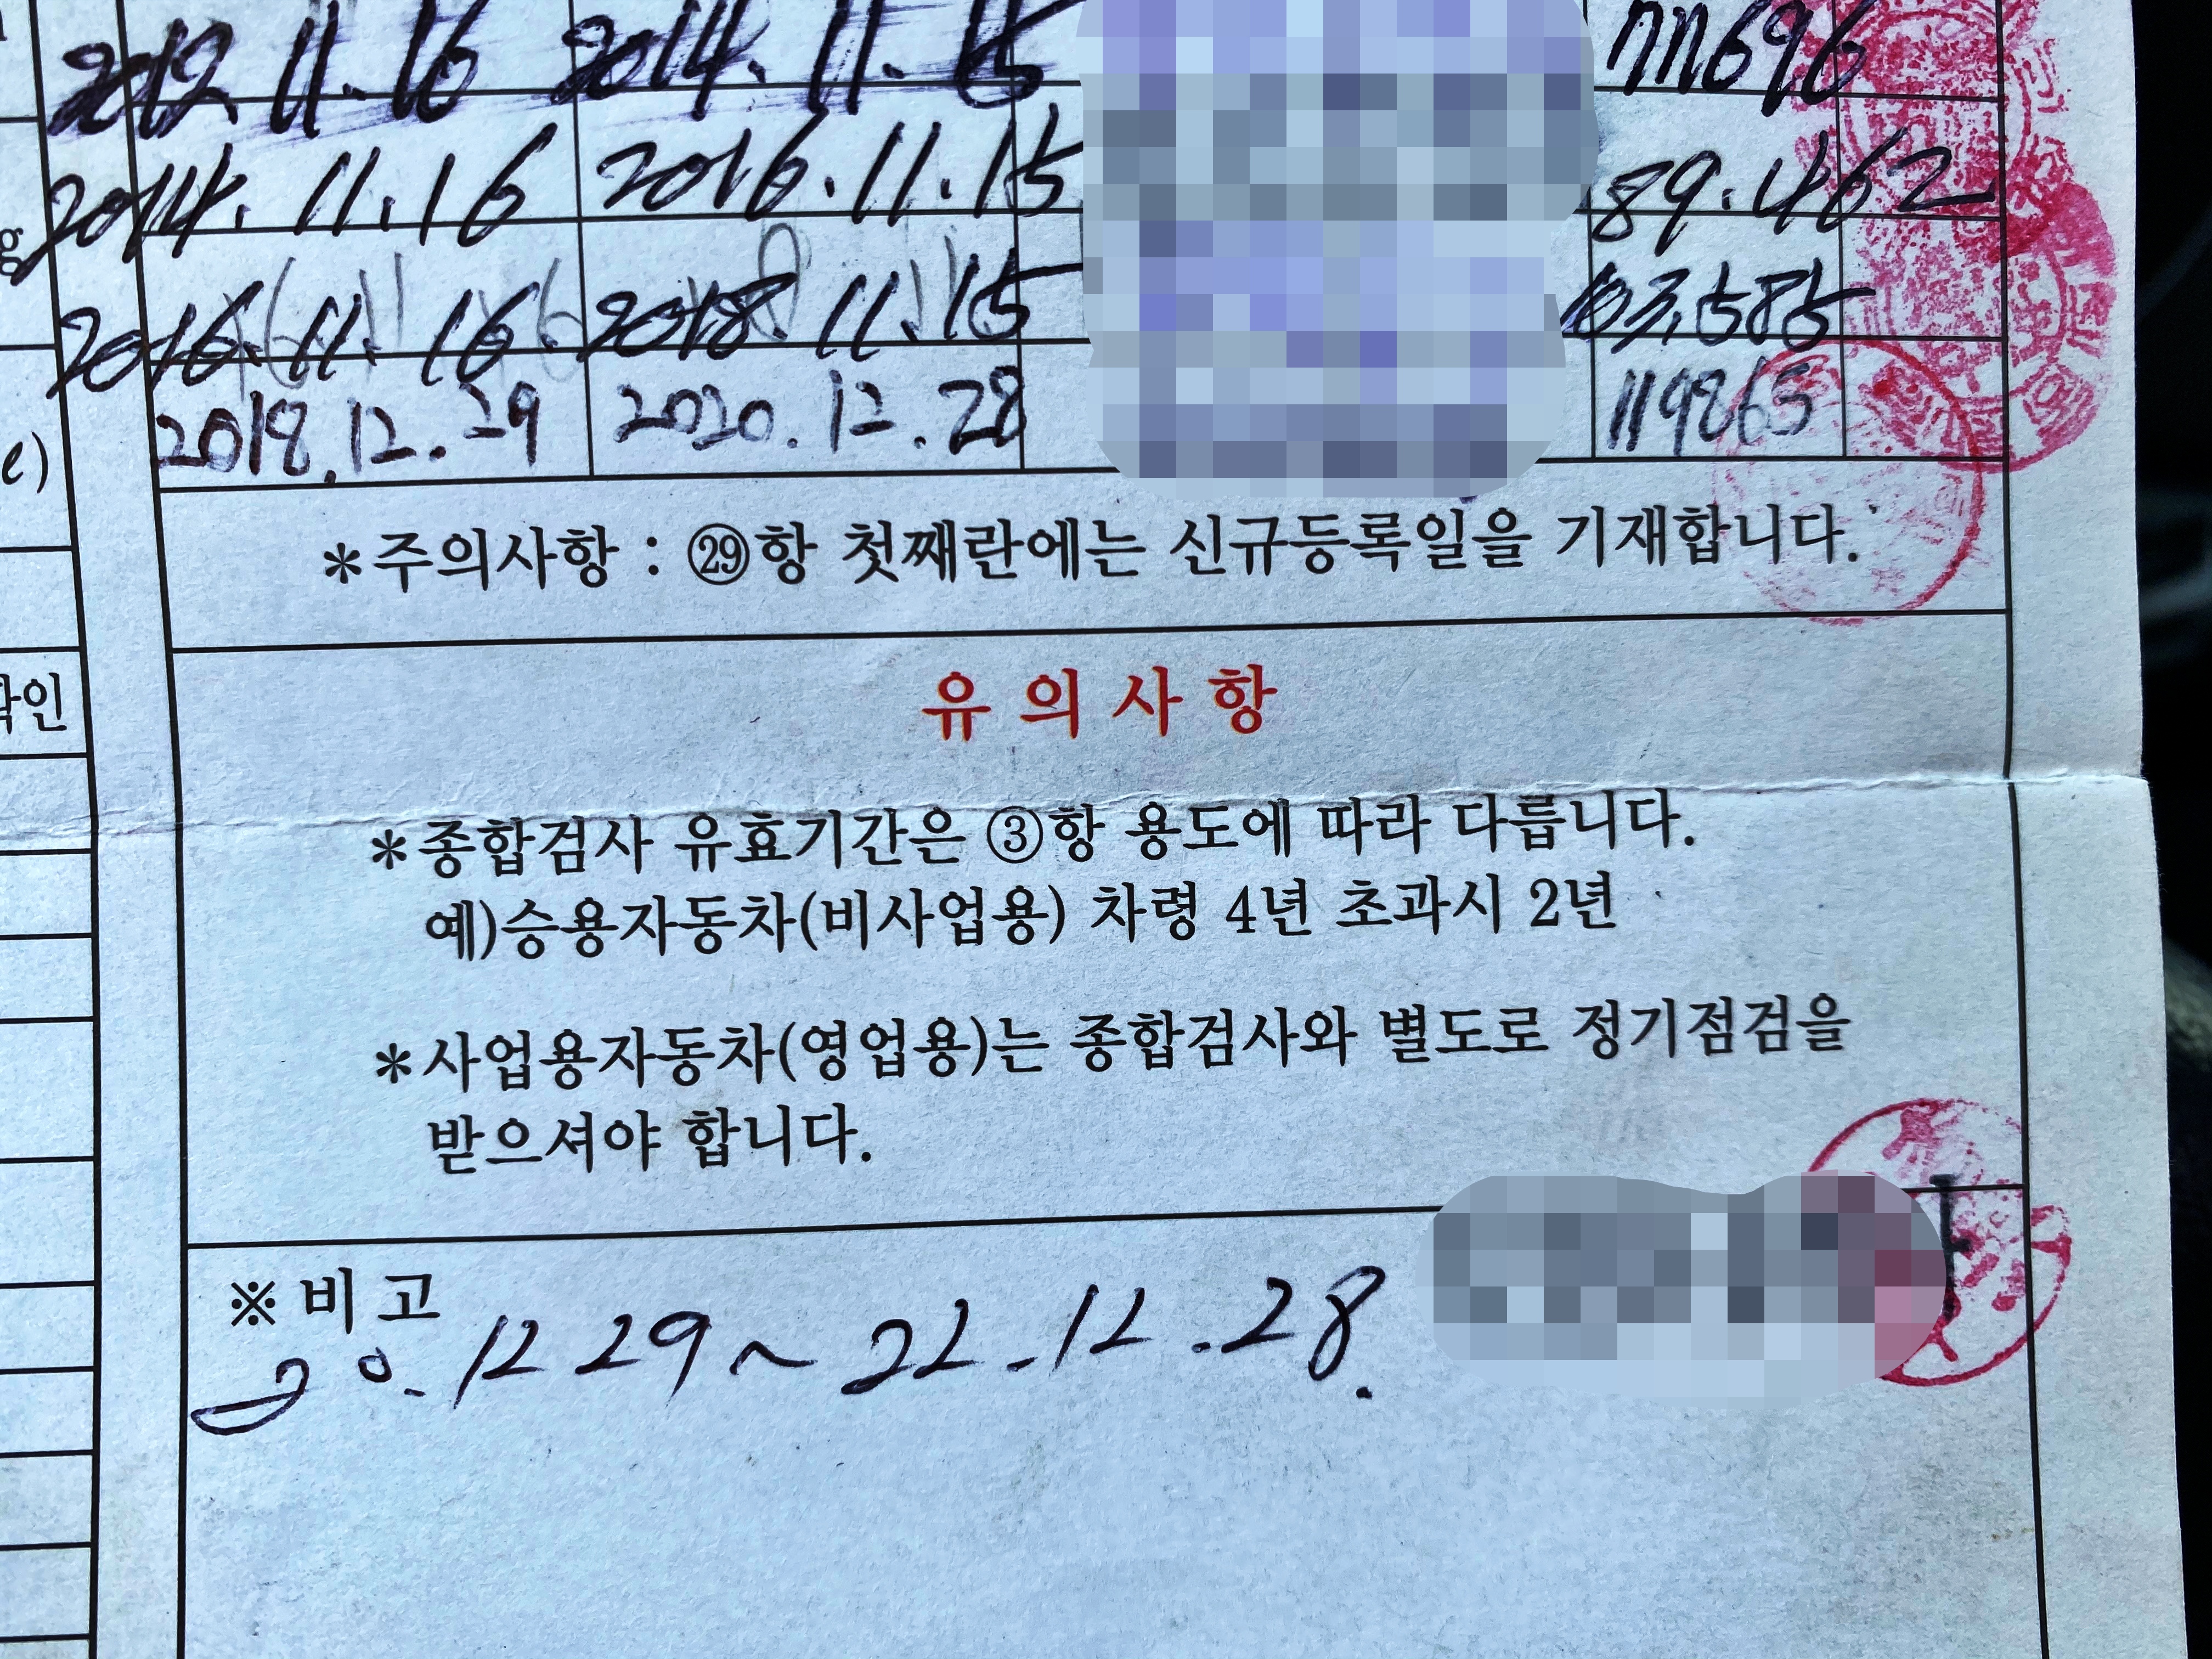 2012. 11. 16 2014. 11. 15 77696
2014. 11. 16 2016. 11. 15 89.462
2016. 11. 16 2018. 11. 15 103,585
2018. 12. 29 2020. 12. 28 119865
*주의사항 : ㉙항 첫째란에는 신규등록일을 기재합니다.
유의사항
*종합검사 유효기간은 ③항 용도에 따라 다릅니다.
예)승용자동차(비사업용) 차령 4년 초과시 2년
*사업용자동차(영업용)는 종합검사와 별도로 정기점검을
받으셔야 합니다.
※ 비 고
20. 12 29 ~ 22. 12. 28.
g
ℓ)
확인